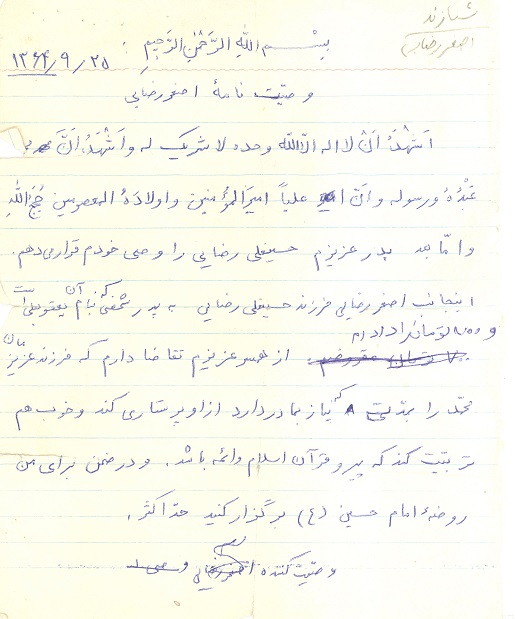 شازند
اصغر رضایی
بِسْمِ اللهِ الرَّحْمٰنِ الرَّحِیمِ
۱۳۶۴/۹/۲۵
وصیّت نامهٔ اصغر رضایی
اَشْهَدُ اَنْ لا اله الّا اللّه وحده لا شریک له و اَشْهَدُ اَنَّ
عَبْدُهُ و رسوله و اَنَّ علیاً امیرَ المؤمنین و اولادَهُ المعصومین حُجَجُ اللّه
و امّا بعد پدر عزیزم حسینعلی رضایی را وصی خودم قرار می‌دهم.
اینجانب اصغر رضایی فرزند حسینعلی رضایی به پدر بنام یعقوبعلی
تومان
از همسر عزیزم تقاضا دارم که فرزند عزیزمان
محمّد را که نیاز بمادر دارد از او پرستاری کند و خوب هم
تربیّت کند که پیرو قرآن اسلام و ائمه باشد. و در ضمن برای من
روضهٔ امام حسین (ع) برگزار کنید حدّاکثر.
وصیّت کننده اصغر رضایی